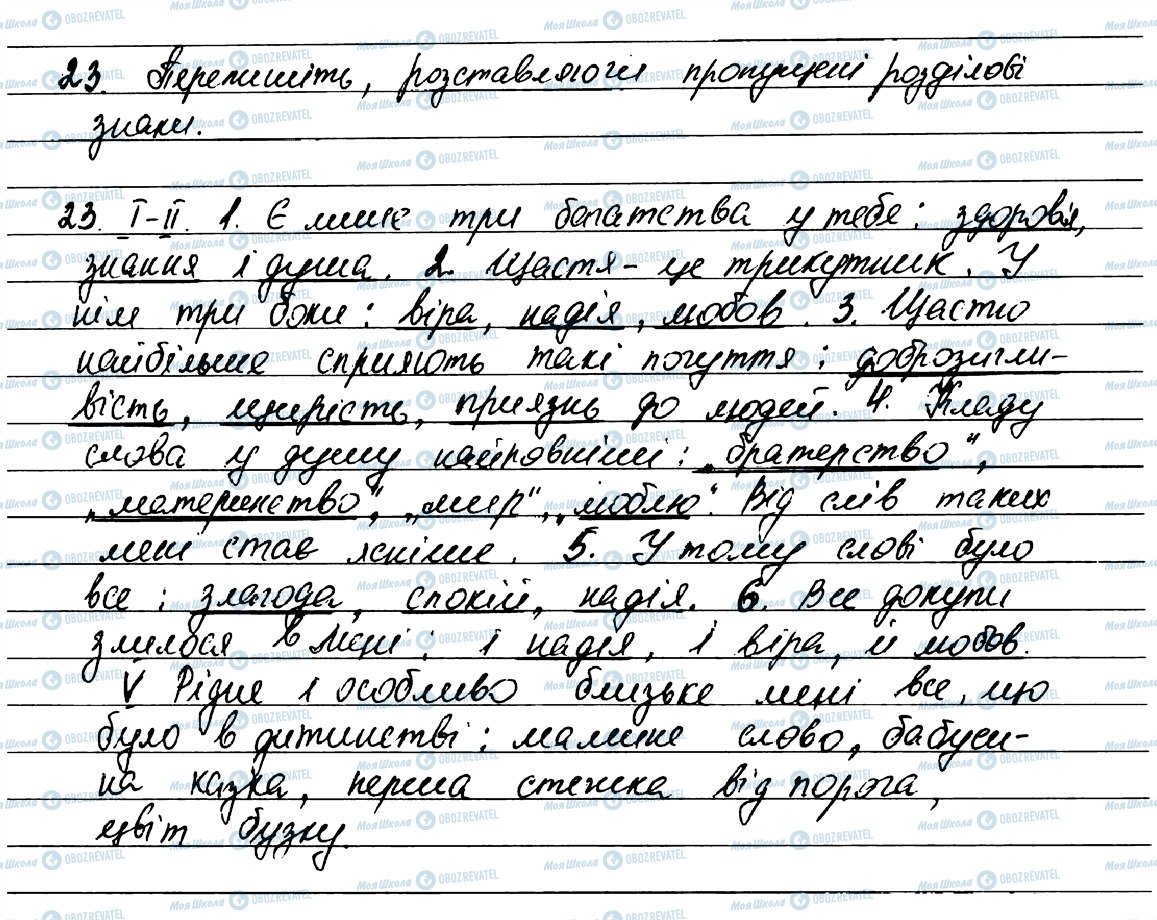 23. Перепишіть, розставляючи пропущені розділові
знаки.
23. I-II. 1. Є лише три богатства у тебе: здоров'я,
знання і душа. 2. Щастя - це трикутник. У
нім три боки: віра, надія, любов. 3. Щастю
найбільше сприяють такі почуття: доброзичли-
вість, щирість, приязнь до людей. 4. Кладу
слова у душу найповніші: „братерство",
„материнство", „мир", „люблю". Від слів таких
мені став ясніше. 5. У тому слові було
все: злагода, спокій, надія. 6. Все докупи
злилося в мені: і надія, і віра, й любов.
V Рідне і особливо близьке мені все, що
було в дитинстві: мамине слово, бабуси-
на казка, перша стежка від порога,
цвіт бузку.